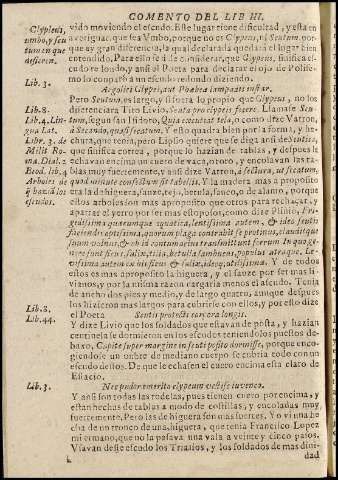 COMENTO DEL LIB III.
Clypleus, umbo, y scu tum en que difieren.
vido moviendo el escudo. Este lugar tiene dificultad, y esta en
averiguar, que sea Vmbo, porque no es Clypeus, ni Scutum. porque
ay gran diferencia, la qual declarada quedará el lugar bien
entendido. Para esto se á de considerar, que Clypeus, sinifica escudo
redondo, y ansi el Poeta para declarar el ojo de Polifemo
lo comparò a un escudo redondo, diziendo.
Lib. 3.
Argolici Clypei, aut Phœbea lampadis instar.
Pero Scutum, es largo, y si fuera lo propio que Clypeus, no los
Lib. 8.
diferenciara Tito Livio, Scuta pro clypeis fuere. Llamase Scutum,
Lib. 4. Lingua Lat.
segun san Isidoro, Quia excutiat tela, o como dize Varron,
à Secando, quasi secatum. Y esto quadra bien por la forma, y hechura,
Libr. 3. de Milit Roma. Dial. 2
que tenia, porque Lipsio quiere se diga ansi
sinifica correa, porque lo hazian de tablas, y despues le
echavan encima un cuero de vaca, o toro, y encolavan las tablas
muy fuertemente, y ansi dize Varron, à Sectura, ut secatum,
Arboles de q̃ haziã los escudos.
quod minute consectis sit tabellis. Y la madera mas a proposito
era la de higuera, sauze, teja, betula, sauco, o alamo, porque
estos arboles son mas aproposito que otros para rechaçar, y
apartar el yerro por ser mas estoposos, como dize Plinio, Frigidissima
quacumque aquatica, lentissima autem, & ideo scutis
faciendis aptissima, quorum plaga contrahit se protinus, clauditque
suum vulnus, & ob id contumacius transmittunt ferrum In quo genere
sunt ficus, salix, tilia, betulla, sambucus, populus utraque. Levissima
autem ex his ficus & salix, ideoque utilissima. Y de todos
estos es mas aproposito la higuera, y el sauze por ser mas livianos,
y por la misma razon cargaria menos el escudo. Tenia
de ancho dos pies y medio, y de largo quatro, aunque despues
los hizieron mas largos para cubrirse con ellos, y por esto dize
Lib. 8.
el Poeta Scutis protecti corpora longis.
Lib. 44.
Y dize Livio que los soldados que estavan de posta, y hazian
centinela se dormieron en los escudos teniendo los puestos debaxo,
Capite super marginem scuti posito dormisse, porque encogiendose
un onbre de mediano cuerpo se cubria todo con un
escudo destos. De que le echasen el cuero encima esta claro de
Estacio.
Lib. 3.
Nec pudor emerito clypeum vestisse iuvenco.
Y ansi son todas las rodelas, pues tienen cuero por encima, y
estan hechas de tablas a modo de costillas, y encoladas muy
fuertemente. Pero las de higuera son mas fuertes. Yo vi una hecha
de un tronco de una higuera, que tenia Francisco Lopez
mi ermano, que no la pasava una vala a veinte y cinco pasos.
Vsavan deste escudo los Triarios, y los soldados de mas dinidad